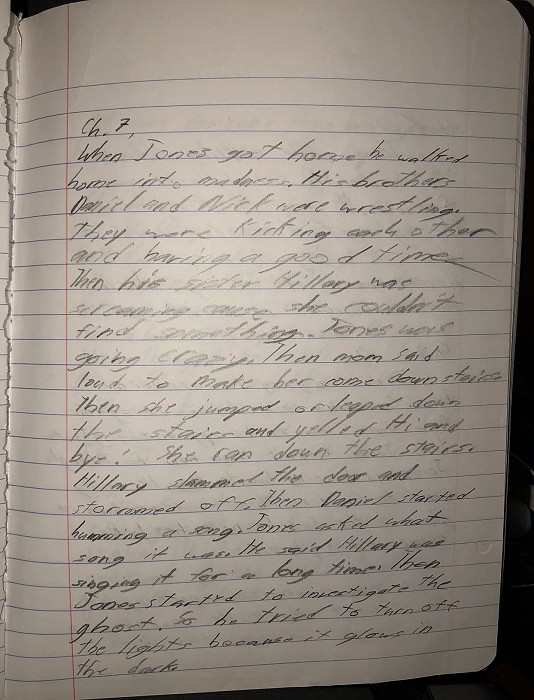 Ch. 7,
When Jones got home he walked
home into madness. His brothers
Daniel and Nick were wrestling.
They were kicking each other
and having a good time
Then his sister Hillary was
screaming cause she couldn't
find something. Jones was
going crazy. Then mom said
loud to make her come downstairs
Then she jumped or leaped down
the stairs and yelled Hi and
bye! She ran down the stairs.
Hillary slammed the door and
storromed off. Then Daniel started
humming a song. Jones asked what
song it was. He said Hillary was
singing it for a long time. Then
Jones started to investigate the
ghost. So he tried to turn off
the lights because it glows in
the dark